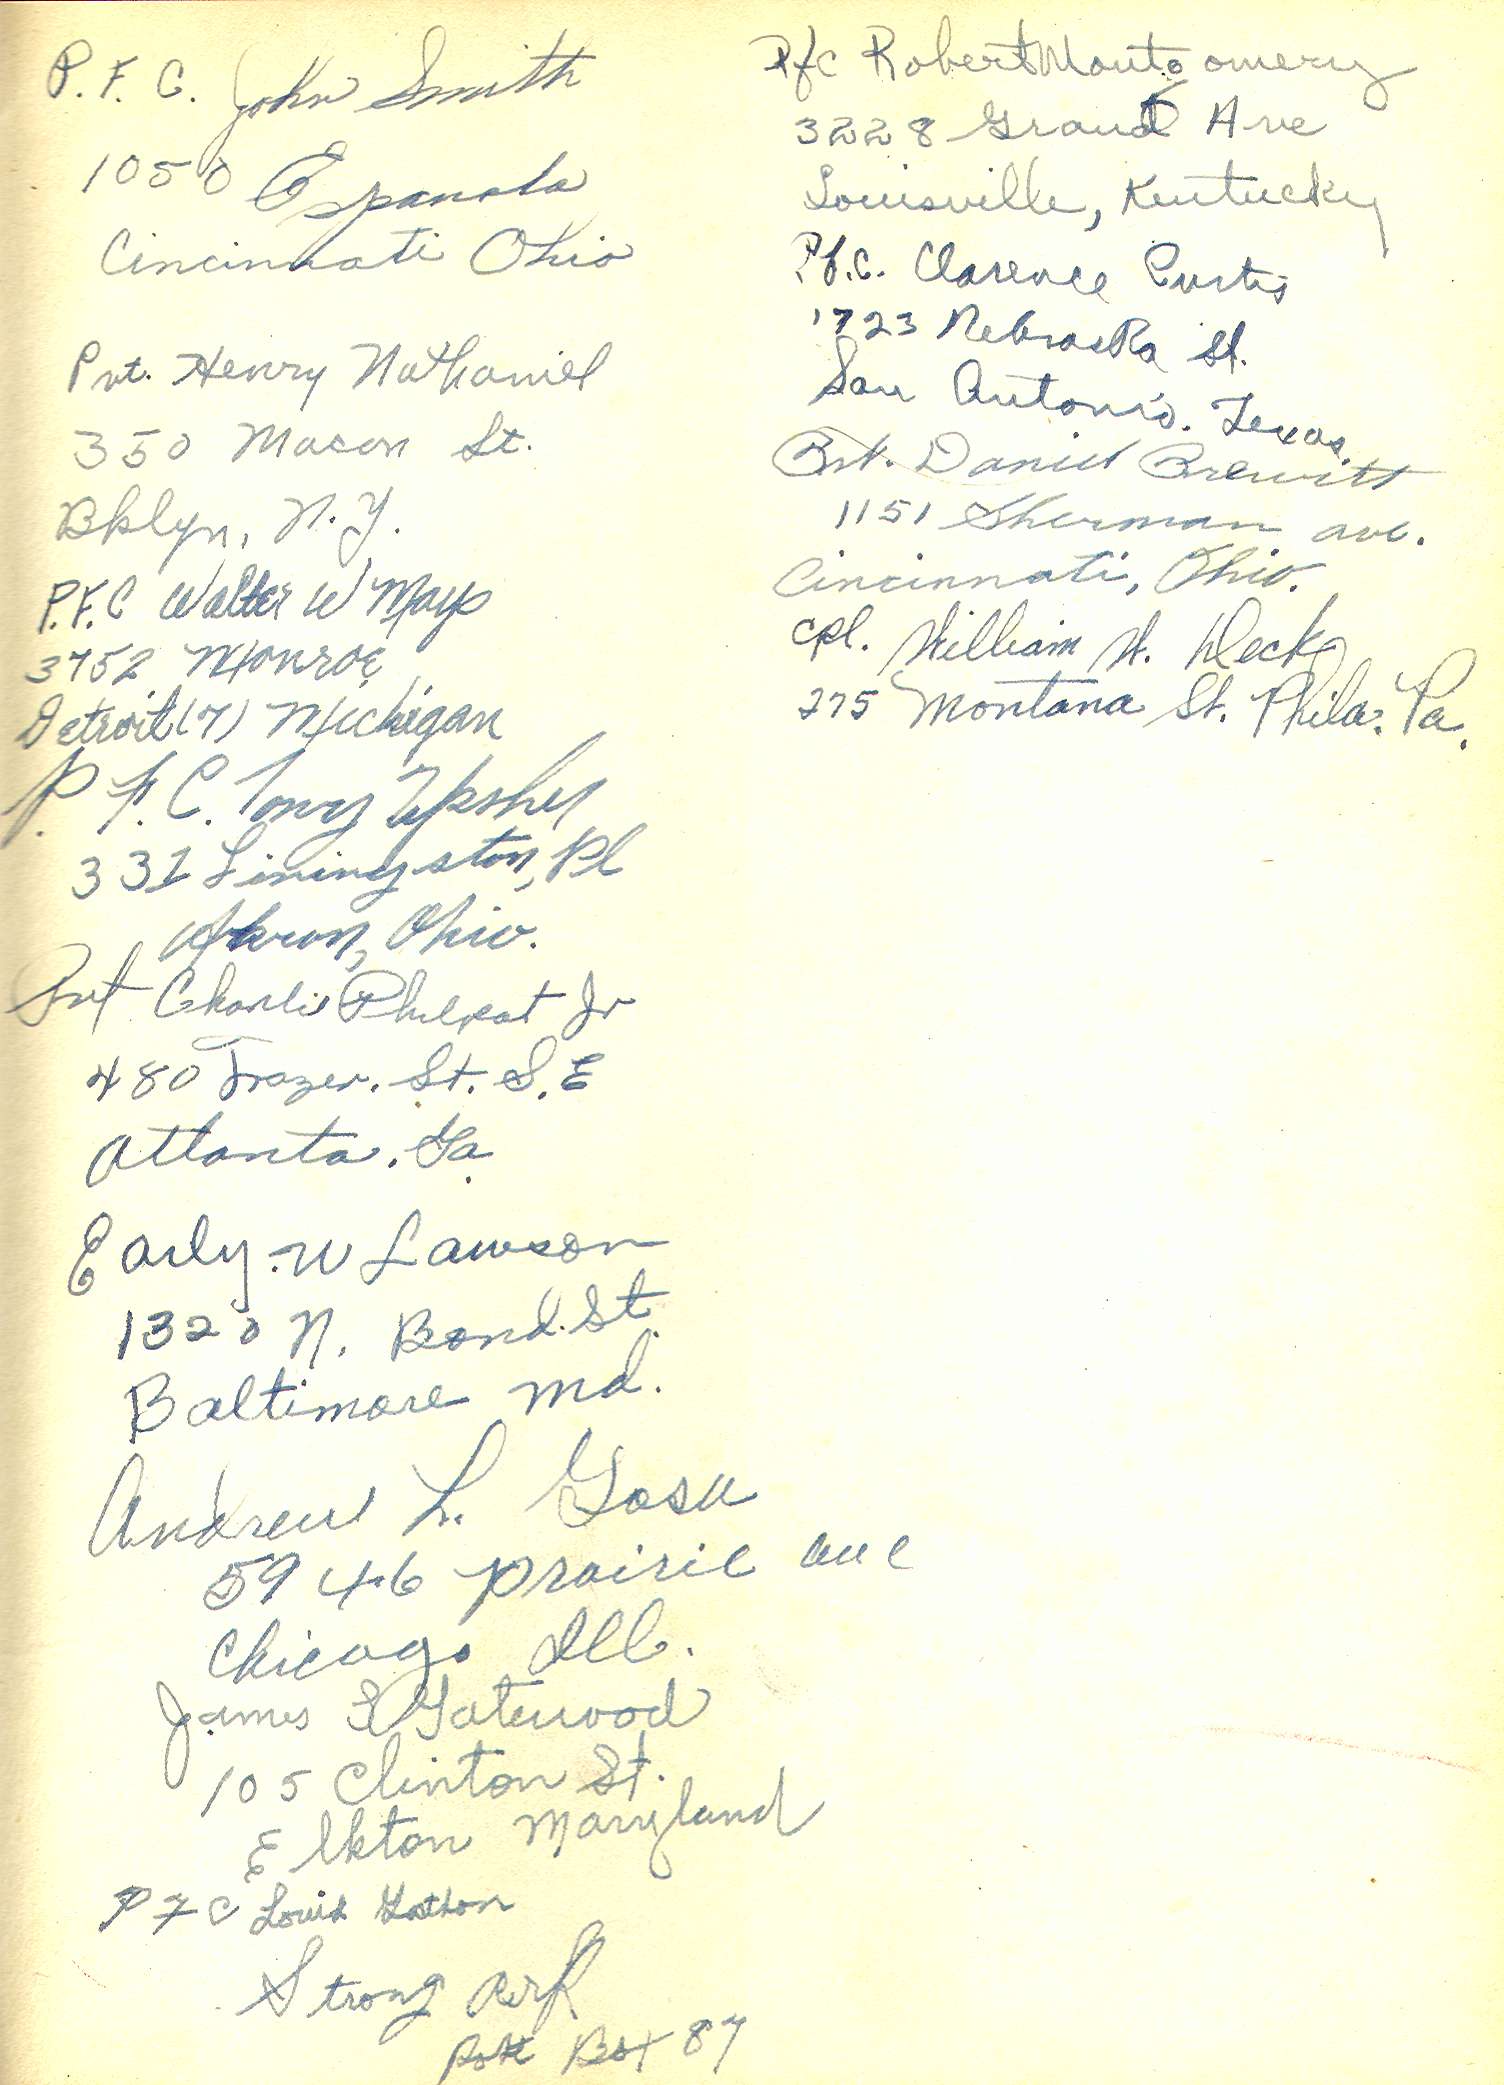 P.F.C. John Smith
1050 Espanola
Cincinnati Ohio
Pvt. Henry Nathaniel
350 Macon St.
Bklyn, N.Y.
P.F.C Walter W Mays
3752 Monroe
Detroit (7) Michigan
P.F.C. Tony Upsher
331 Livingston, Pl
Akron, Ohio.
Pvt Charlie Jr
480 Frazer. St. S.E
Atlanta. Ga.
Early. W Lawson
1320 N. Bond. St.
Baltimore Md.
Andrew L.
5946 Prairie ave
Chicago Ill.
James Gatewood
105 Clinton St.
Elkton Maryland
PFC Louis
Strong Ark
Box 87
Pfc Robert Montgomery
3228 Grand Ave
Louisville, Kentucky
Pf.c. Clarence Curtis
1723 Nebraska St.
San Antonio. Texas.
Pvt. Daniel Brewitt
1151 Sherman ave.
Cincinnati, Ohio.
Cpl. William W. Deck
275 Montana St. Phila. Pa.